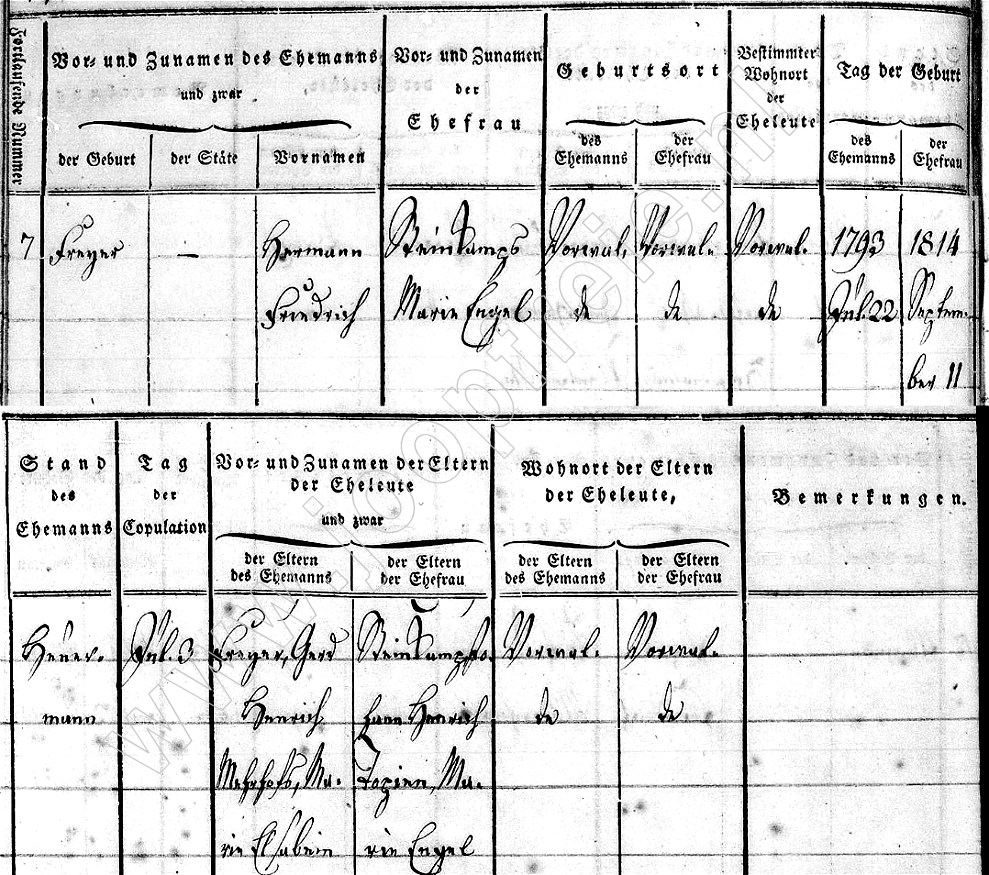 Fortlaufende Nummer
Vor- und Zunamen des Ehemanns
und zwar
der Geburt
der Stäte
Vornamen
Vor- und Zunamen
der
Ehefrau
Geburtsort
des
Ehemanns
der
Ehefrau
Bestimmter
Wohnort
der
Eheleute
Tag der Geburt
des
Ehemanns
der
Ehefrau
7 Freyer — Hermann Steinkamps Vorwal. Vorwal. Vorwal. 1793 1814
Friedrich Marie Engel de de de Jul. 22 Septem-
ber 11
Stand
des
Ehemanns
Tag
der
Copulation
Vor- und Zunamen der Eltern
der Eheleute
und zwar
der Eltern
des Ehemanns
der Eltern
der Ehefrau
Wohnort der Eltern
der Eheleute,
der Eltern
des Ehemanns
der Eltern
der Ehefrau
Bemerkungen.
Heuer- Jul. 3 Freyer, Gerd Vorwal. Vorwal.
mann Henrich Henrich de de
Ma-
rie Elsabein rie Engel
www.joopfreie.nl